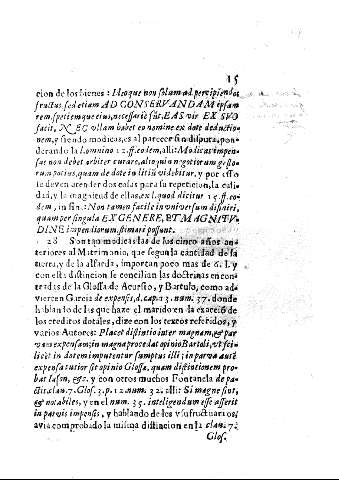 15
cion de los bienes: Ideoque non solum ad percipiendos
fructus, sed etiam AD CONSERVANDAM ipsam
rem, spetiemque eius, necessariæ sũt, EAS vir EX SVO
facit, NEC vllam habet eo nomine ex dote deductio-
nem, y siendo modicas, es al parecer sin disputa, pon-
derando la l. omnino 12. ff. eodem, alli: Modicas impen-
sas non debet arbiter curare, alioquin negotiorum gesto-
rum potius, quam de dote in litiū videbitur, y por esso
se deven atender dos cosas para su repeticion, la cali-
dad, y la magnitud de ellas, ex l. quod dicitur 15. ff. eo-
dem, in fin. Non tamen facile in vniversum difiniri,
quam per singula EX GENERE, ET MAGNITV-
DINE impendiorum, stimari possunt.
28 Son tan modicas las de los cinco años an-
teriores al Matrimonio, que segun la cantidad de la
tierra, y de la alfarda, importan poco mas de 6. l. y
con esta distincion se concilian las doctrinas encon-
tradas de la Glossa de Acursio, y Bartulo, como ad-
vierten Garcia de expensis, d. cap. 3. num. 37. donde
hablando de las que haze el marido en la exacció de
los creditos dotales, dize con los textos referidos, y
varios Autores: Placet distinctio inter magnam, et par
vam expensam; in magna procedat opinio Bartoli, vt sci-
licet in dotem imputentur sumptus illi; in parva autē
expensa tutior sit opinio Glossæ, quam distinctionem pro-
bat Iason, &c. y con otros muchos Fontanela de pa-
ctis clau. 7. Glos. 3. p. 12. num. 32. alli: Si magnæ sint,
& notabiles, y en el num. 35. inteligendum esse asserit
in parvis impensis, y hablando de los vsufructuarios,
avia comprobado la misma distincion en la clau. 7.
Glos.